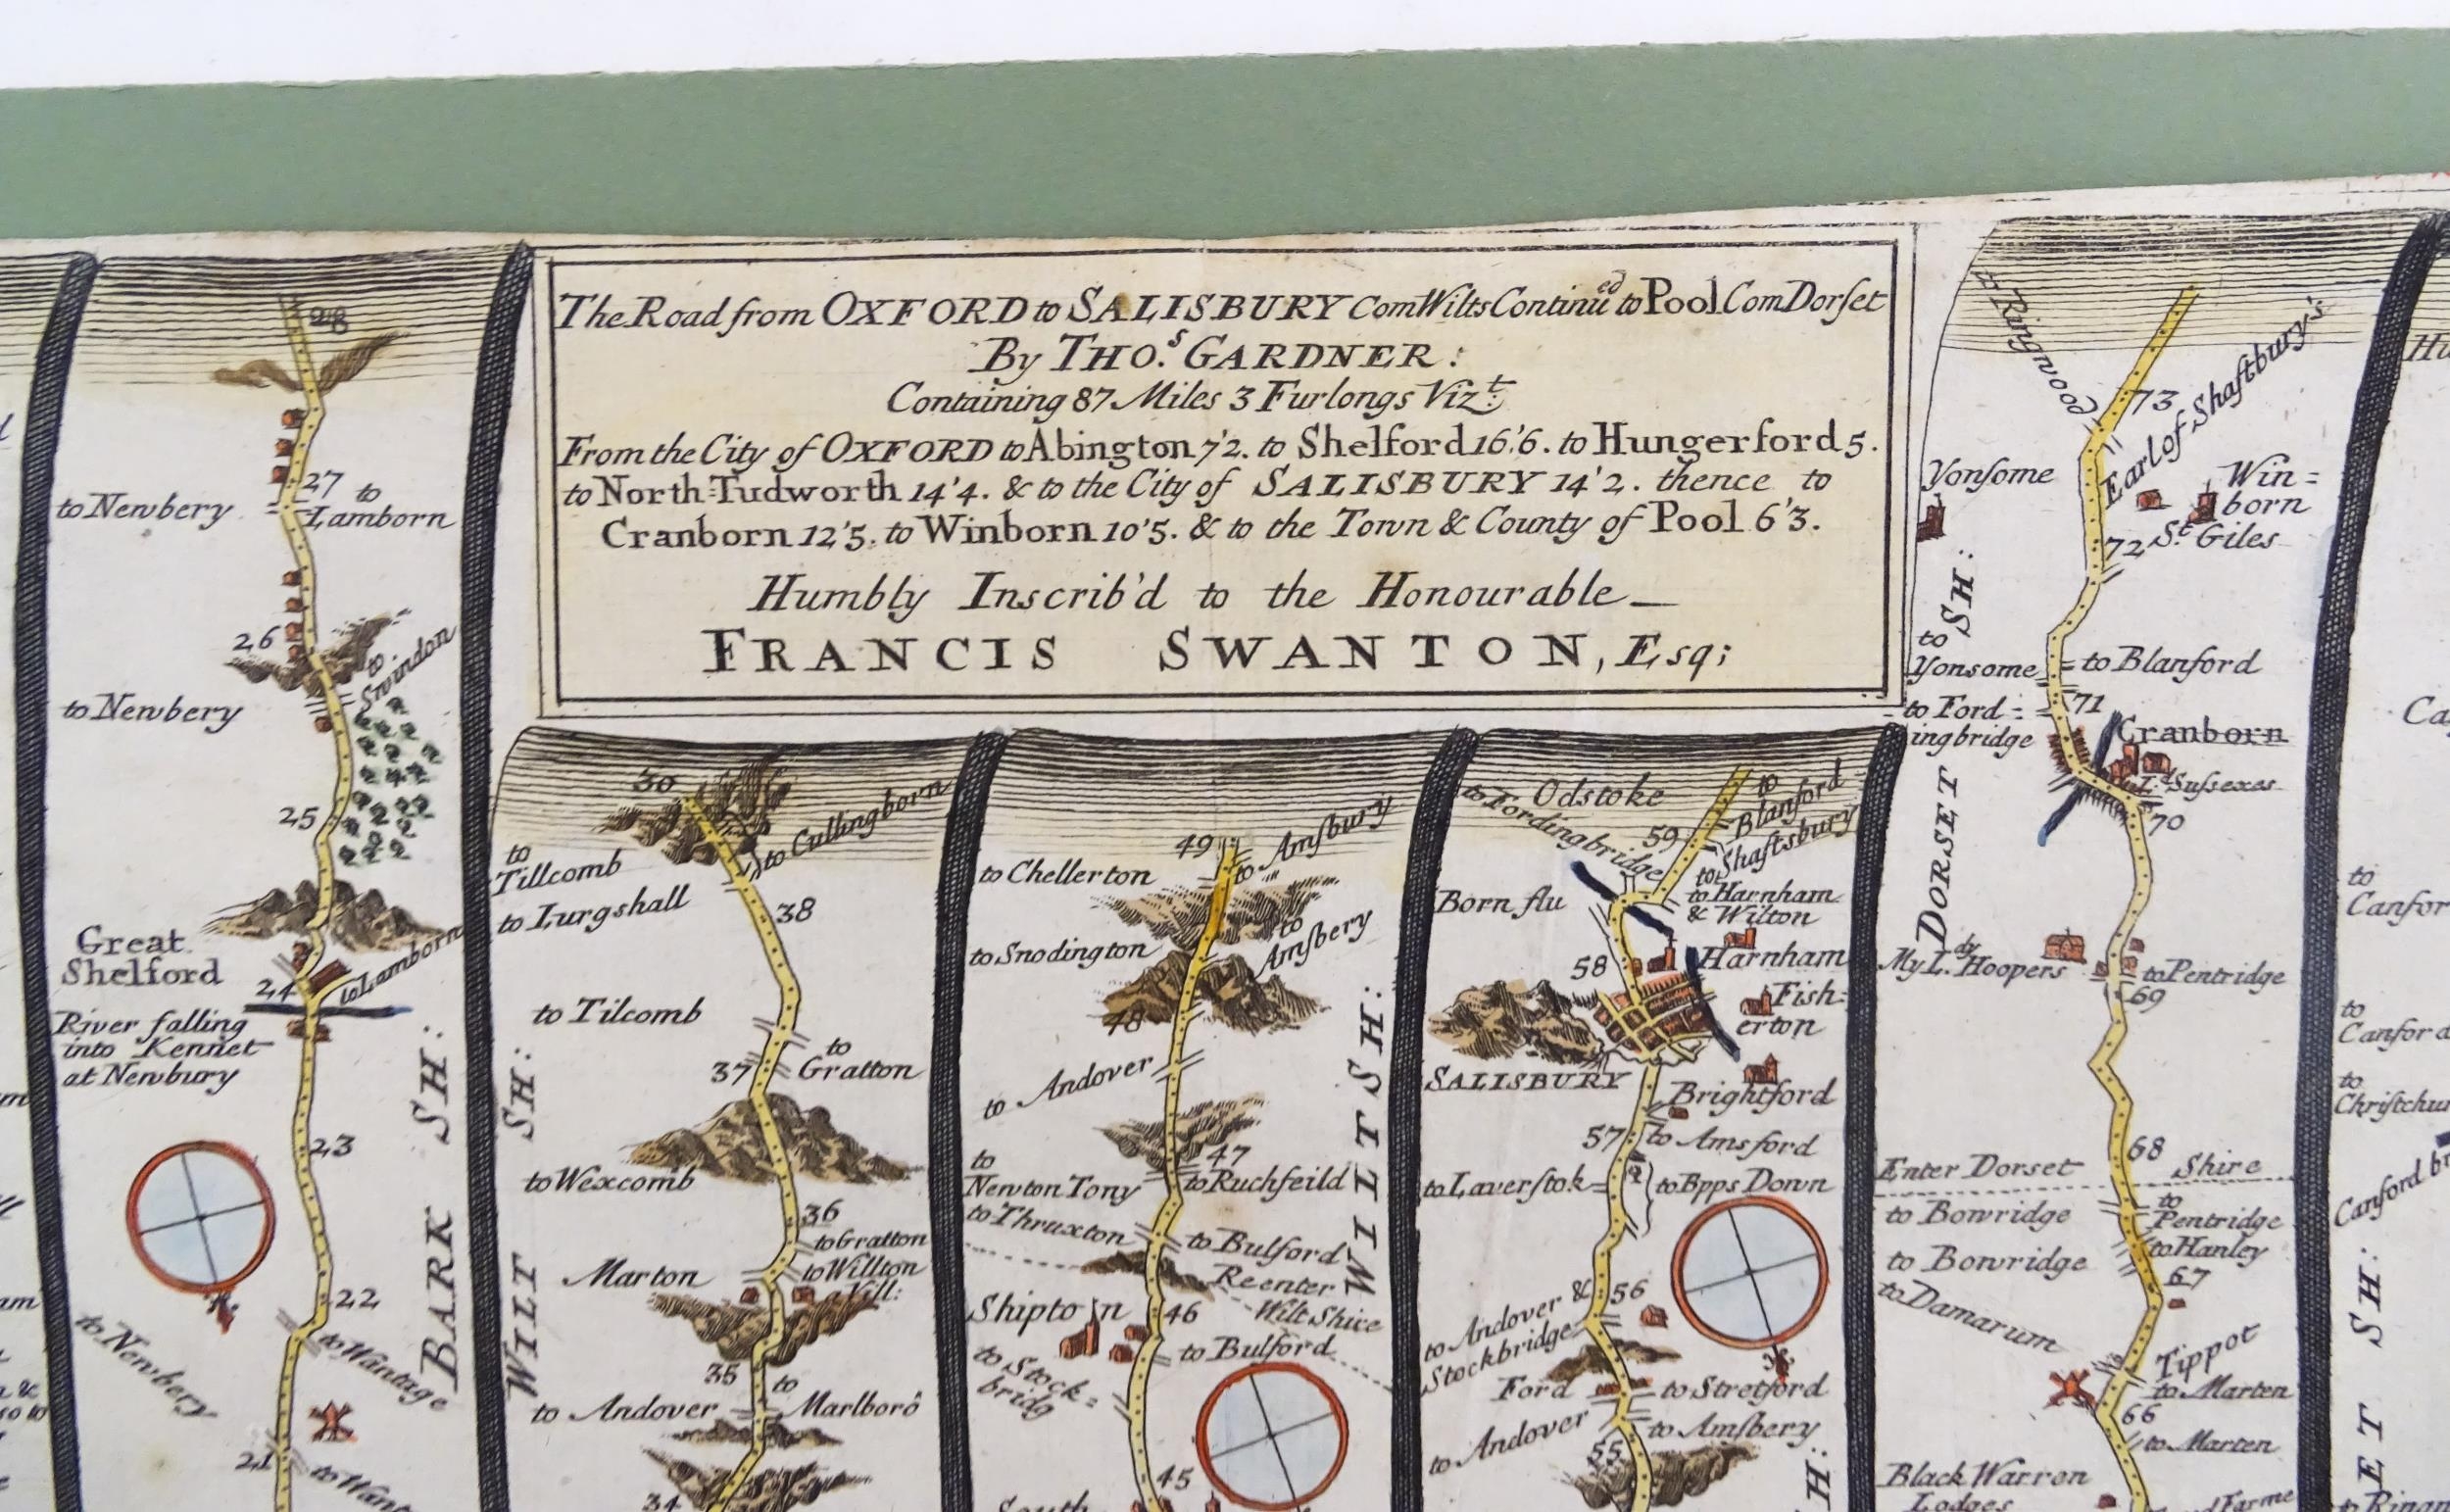 The Road from OXFORD to SALISBURY Com Wilts Continued to Pool Com Dorſet
By THO.S GARDNER:
Containing 87 Miles 3 Furlongs Vizt:
From the City of OXFORD to Abington 7'2. to Shelford 16'6. to Hungerford 5.
to North=Tudworth 14'4. & to the City of SALISBURY 14'2. thence to
Cranborn 12'5. to Winborn 10'5. & to the Town & County of Pool 6'3.
Humbly Inscrib'd to the Honourable
FRANCIS SWANTON, Esq;
28
27
to Newbery
to
Lamborn
26
to
Swindon
to Newbery
25
Great
Shelford
24
to Lamborn
River falling
into Kennet
at Newbury
23
BARK SH:
22
to Newbery
to Wantage
21
to Want
30
to Cullingborn
to
Tillcomb
to Lurgshall
38
to Tilcomb
37
to
Gratton
WILT SH:
to Wexcomb
36
to Gratton
Marton
to Willton
a Vill:
35
to Andover
to
Marlboro
34
49
to Amſbury
to Chellerton
to Snodington
to
Amſbery
48
to Andover
47
to
Newton Tony
to Ruchfeild
to Thruxton
to Bulford
Reenter
Wilt Shire
Shipton
46
to Bulford
to Stock=
bridg
45
South
WILTSH:
Odstoke
to Fordingbridge
59
to
Blanford
to Shaftsbury
Born flu
to Harnham
& Wilton
58
Harnham
Fish=
erton
SALISBURY
Brightford
57
to Amsford
to Laverſtok
to Bpps Down
56
to Andover &
Stockbridge
Ford
to Stretford
to Andover
to Amſbery
55
SH:
to Ringwood
73
Earl of Shaftbury's
Yonſome
Win=
born
St. Giles
72
DORSET SH:
to
Yonsome
to Blanford
71
to Ford=
ingbridge
Cranborn
Suſsexes
70
My Ldy. Hoopers
to Pentridge
69
68
Enter Dorset Shire
to
Pentridge
to Bowridge
to Hanley
to Bowridge
67
to Damarum
Tippot
to Marten
66
to Marten
Black Warren
Lodges
Farme
to
Canfor
to
Canford
to
Chriſtchu
Canford br
ET SH: